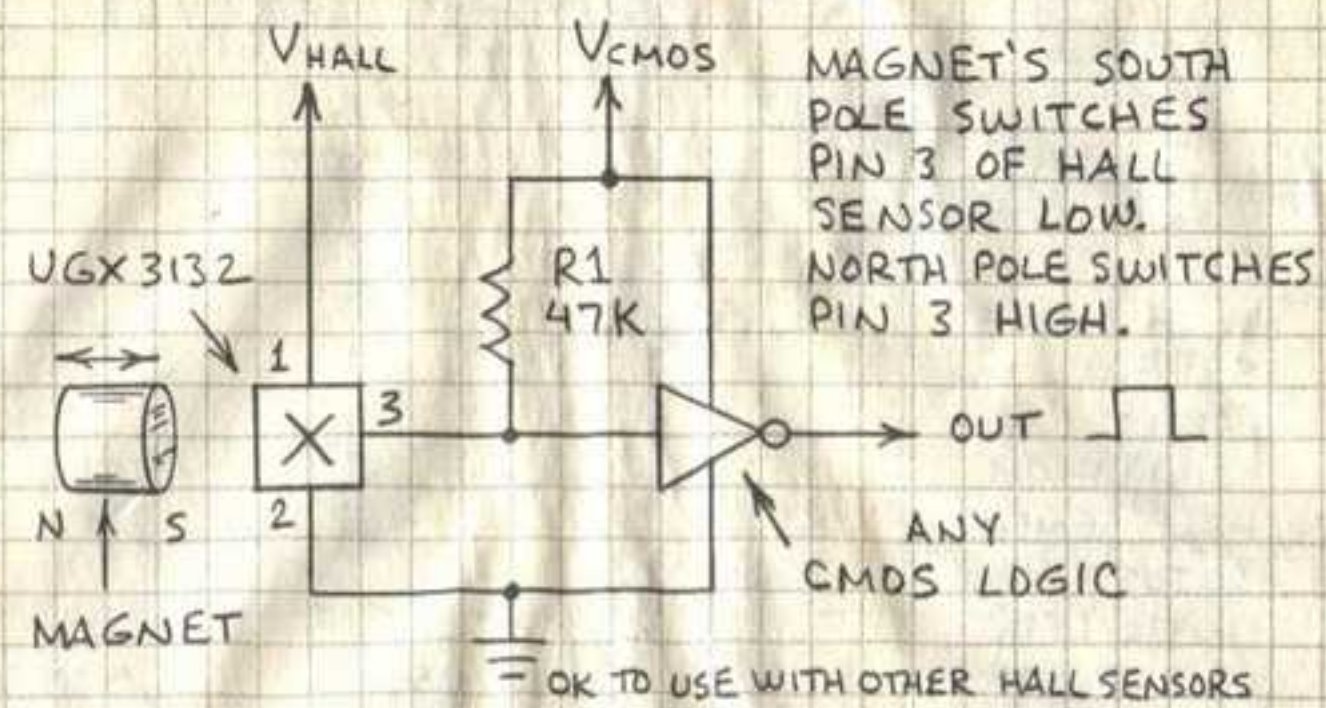 VHALL
VCMOS
MAGNET'S SOUTH
POLE SWITCHES
PIN 3 OF HALL
SENSOR LOW.
NORTH POLE SWITCHES
PIN 3 HIGH.
UGX3132
R1
47K
1
3
2
N
S
MAGNET
OUT
ANY
CMOS LOGIC
OK TO USE WITH OTHER HALL SENSORS